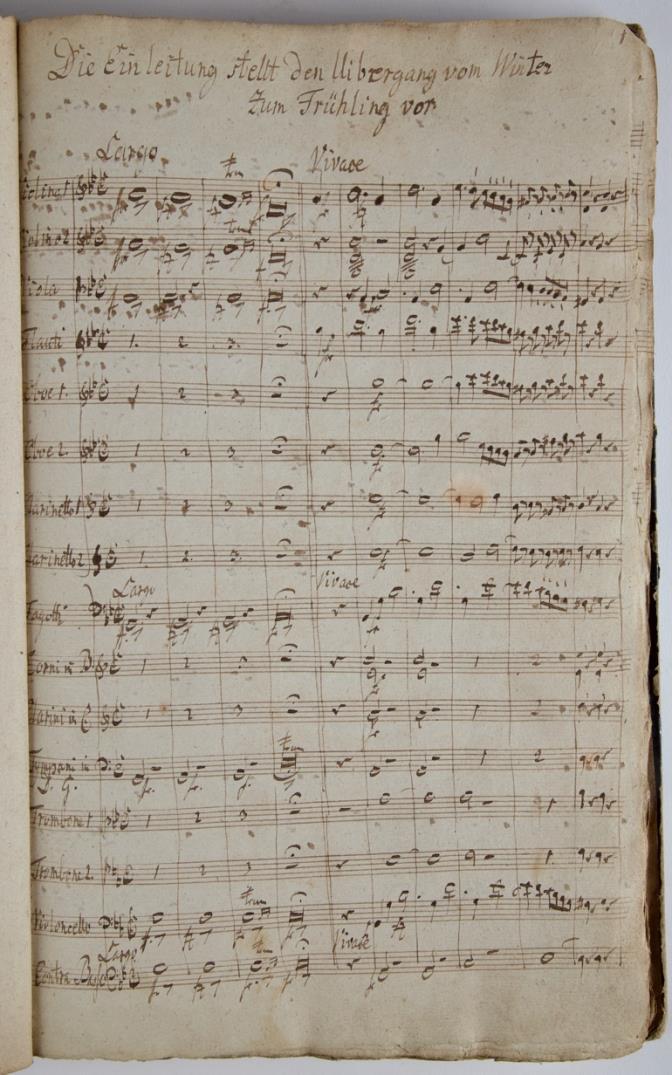 Die Einleitung stellt den Uibergang vom Winter
zum Frühling vor
Largo
Vivace
Violino 1
Violino 2
Viola
Flauti
1. 2 3
Oboe 1.
1 2 3
Oboe 2
1 2 3
Clarinetto 1
1 2 3
Clarinetto 2
1. 2 3.
Largo
Vivace
Fagotti
Corni in B
1 2 3 1 2
Clarini in C.
1 2 3 1 2
Tympani in
D. G.
1 2
Trombone 1
1 2 3 1
Trombone 2.
1 2 3 1.
Violoncello
Largo
Vivace
Contra Basso